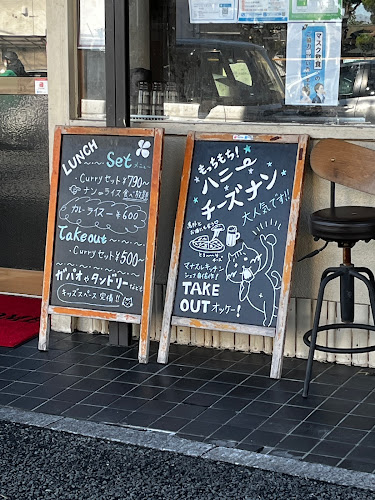 LUNCH
Set メニュー
Curryセット ¥790〜
ナン or ライス 食べ放題
カレーライス ¥600
Takeout
Curryセット ¥500〜
ガパオやタンドリー などもー
キッズスペース 完備!!
もっちもち!
ハニー
チーズナン
大人気です!!
TAKE
OUT オッケー!
マスク会食